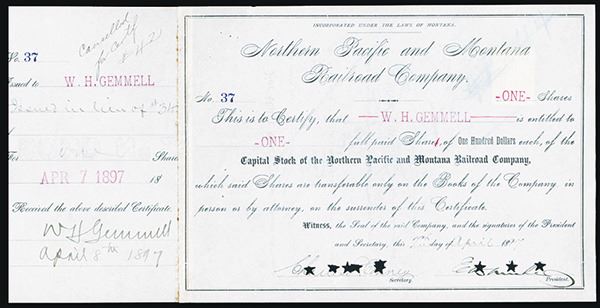 Cancelled
for Certf
# 42
No. 37
Issued to W. H. GEMMELL
Issued in lieu of #36
For One Share
APR 7 1897 18
Received the above described Certificate.
W H Gemmell
April 8th 1897
INCORPORATED UNDER THE LAWS OF MONTANA.
Northern Pacific and Montana
Railroad Company.
No. 37 -ONE- Shares
This is to Certify, that W. H. GEMMELL is entitled to
-ONE- full paid Shares, of One Hundred Dollars each, of the
Capital Stock of the Northern Pacific and Montana Railroad Company,
which said Shares are transferable only on the Books of the Company in
person or by attorney, on the surrender of this Certificate.
Witness, the Seal of the said Company, and the signatures of the President
and Secretary, this 7th day of April 1897
Secretary. President.